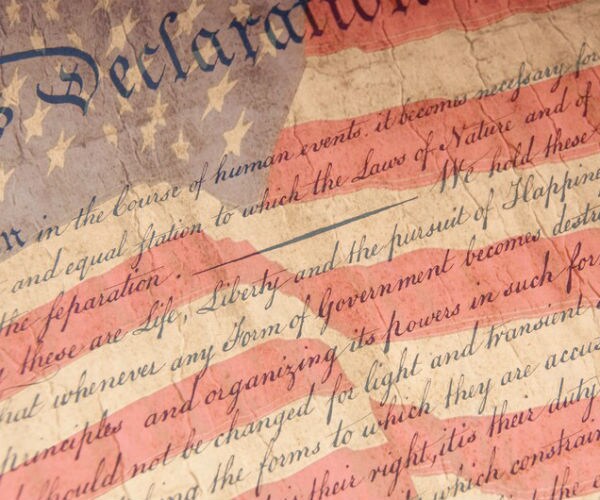 s Declaration
n in the Course of human events. it becomes neceſsary for
and equal ſtation to which the Laws of Nature and of
the ſeparation . We hold these
these are Life, Liberty and the pursuit of Happine
hat whenever any Form of Government becomes destru
principles and organizing its powers in such for
should not be changed for light and transient
ing the forms to which they are accus
is their right, it is their duty
which constrain
the